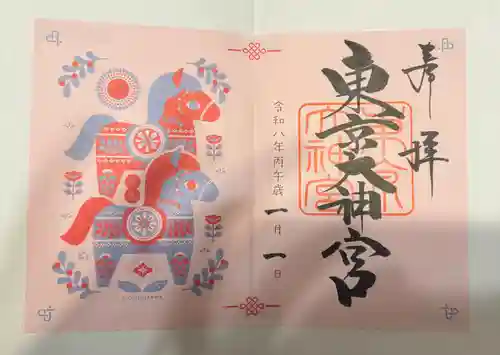 奉拝
東京大神宮
東京大神宮
令和八年丙午歳
一月一日